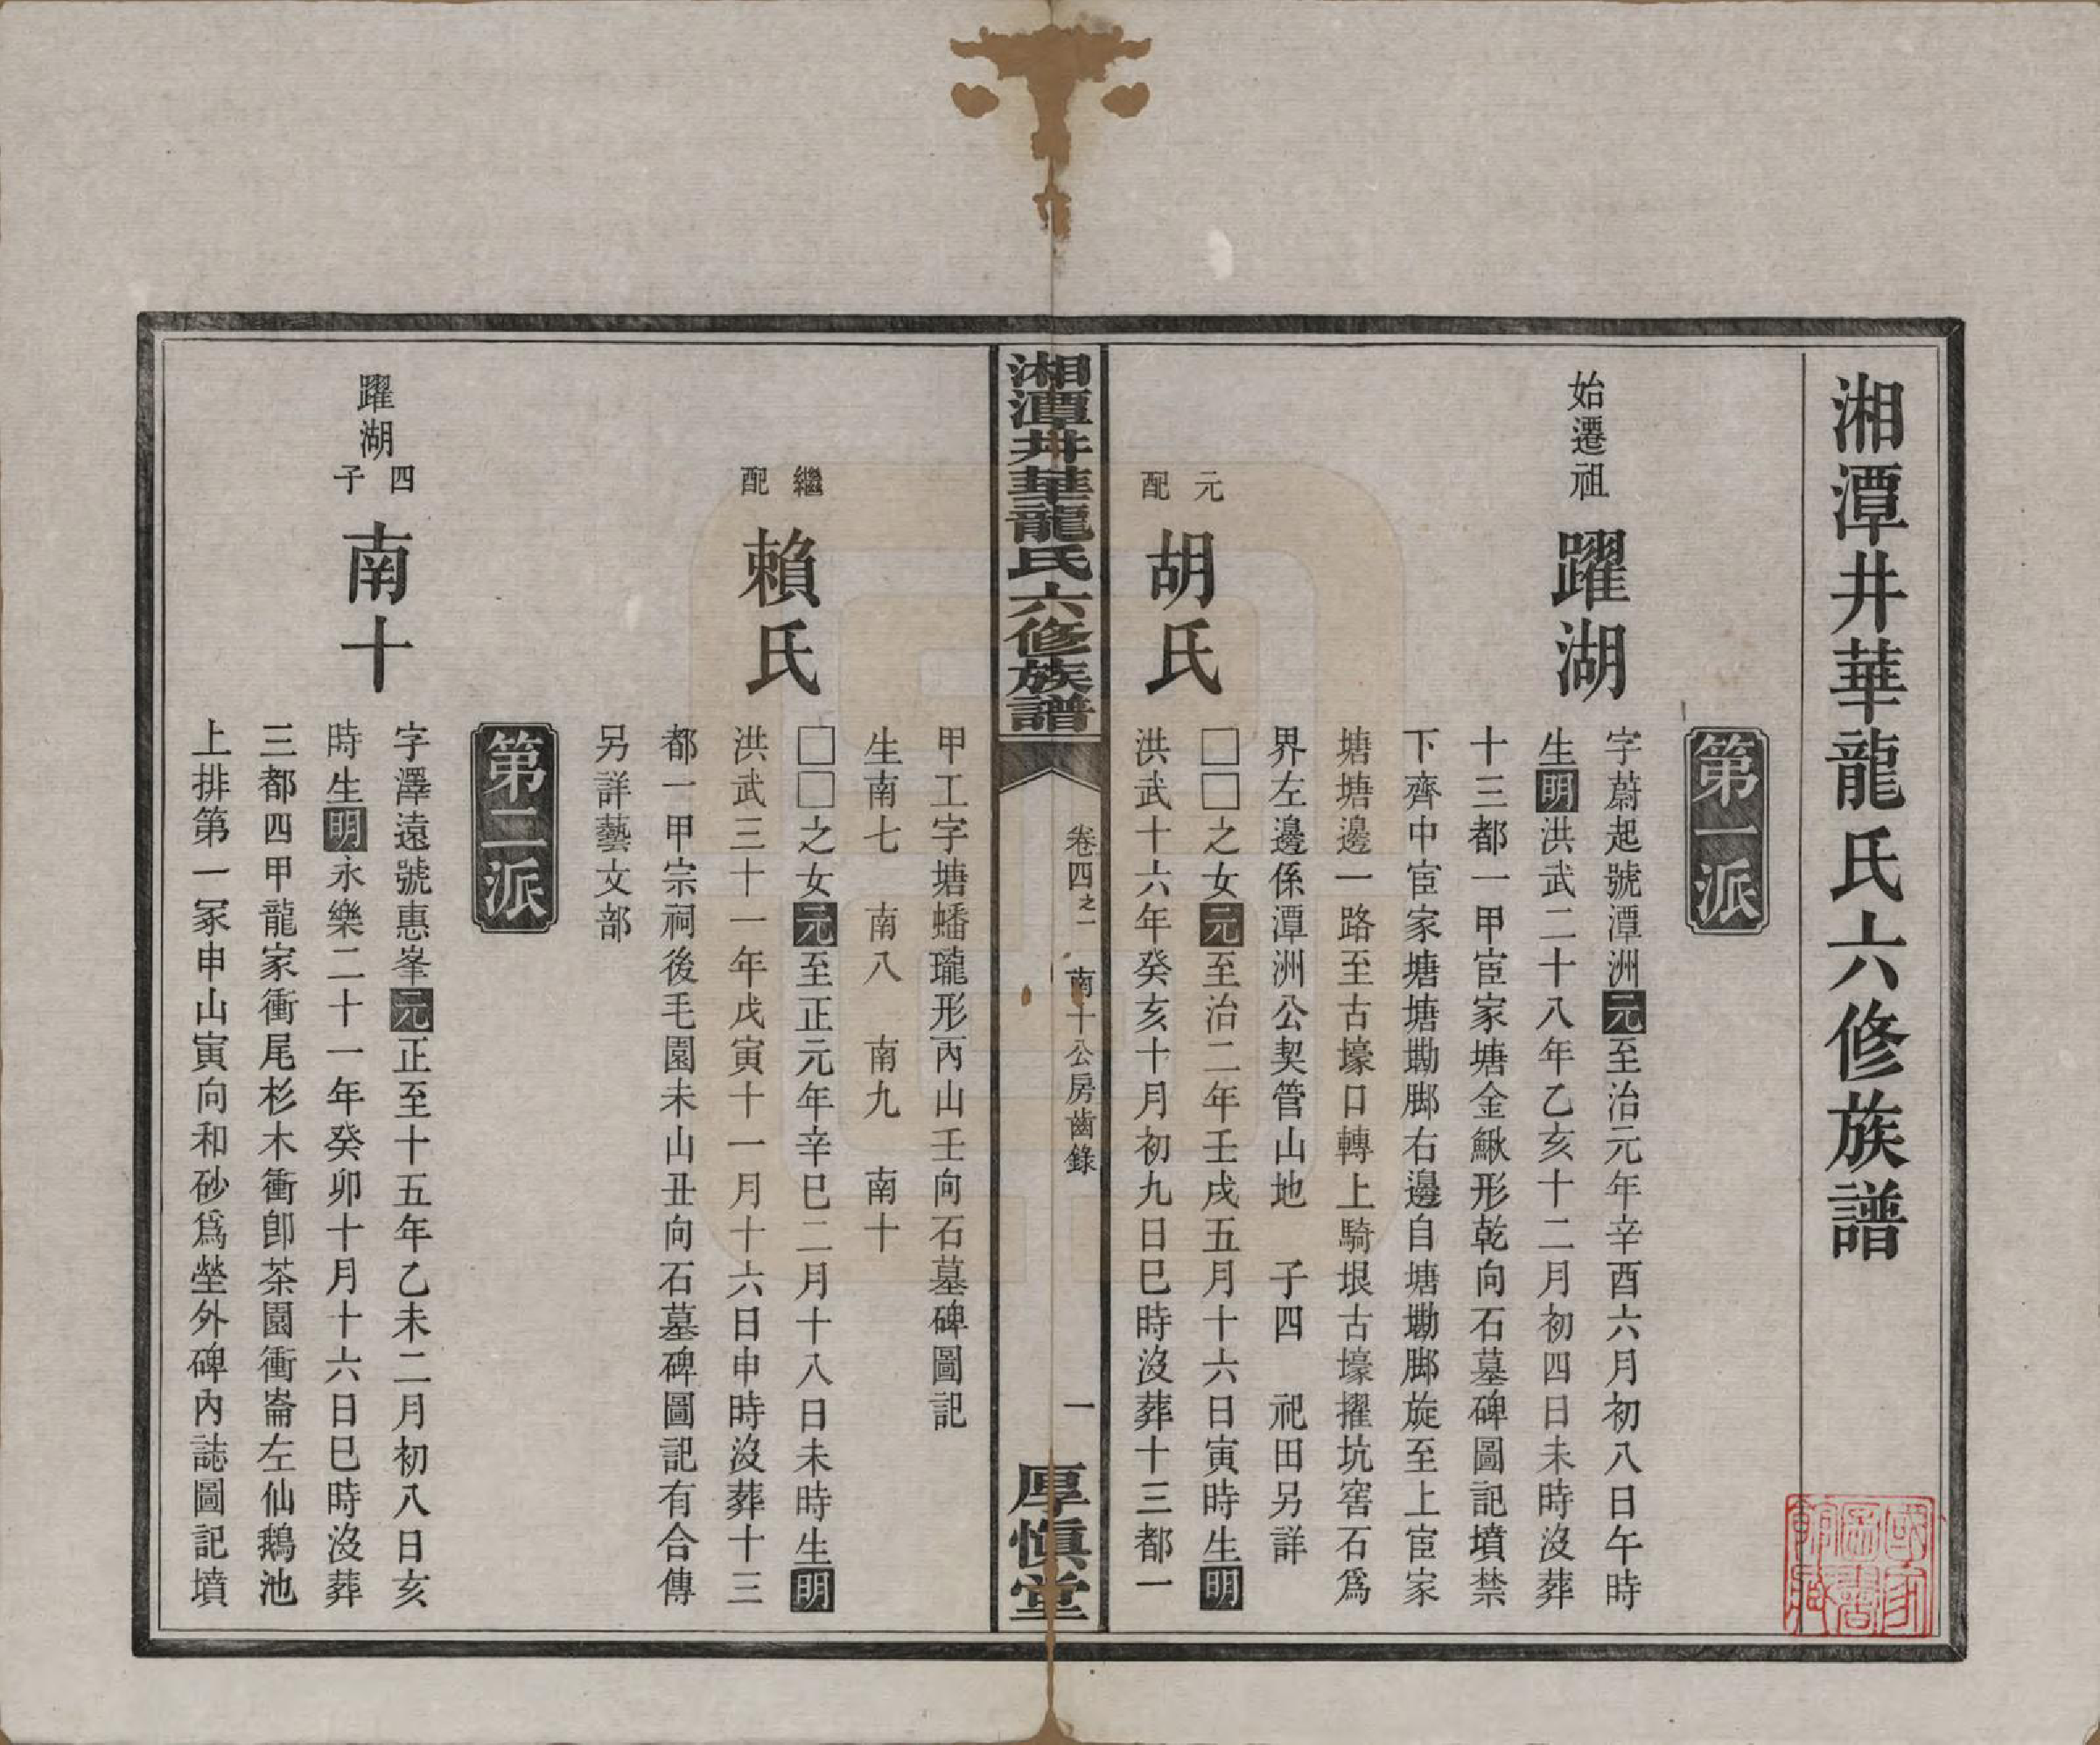 湘潭井華龍氏六修族譜
第一派
始遷祖
躍湖
字蔚起號潭洲元至治元年辛酉六月初八日午時
生明洪武二十八年乙亥十二月初四日未時沒葬
十三都一甲宦家塘金鰍形乾向石墓碑圖記墳禁
下齊中宦家塘塘墈脚右邊自塘墈脚旋至上宦家
塘塘邊一路至古壕口轉上騎垠古壕擢坑窖石爲
界左邊係潭洲公契管山地 子四 祀田另詳
元配
胡氏
□□之女元至治二年壬戌五月十六日寅時生明
洪武十六年癸亥十月初九日巳時沒葬十三都一
湘潭井華龍氏六修族譜
卷四之一 南十公房齒錄
一
厚愼堂
甲工字塘蟠瓏形丙山壬向石墓碑圖記
生南七 南八 南九 南十
繼配
賴氏
□□之女元至正元年辛巳二月十八日未時生明
洪武三十一年戊寅十一月十六日申時沒葬十三
都一甲宗祠後毛園未山丑向石墓碑圖記有合傳
另詳藝文部
第二派
躍湖四子
南十
字澤遠號惠峯元正至十五年乙未二月初八日亥
時生明永樂二十一年癸卯十月十六日巳時沒葬
三都四甲龍家衝尾杉木衝卽茶園衝崙左仙鵝池
上排第一冢申山寅向和砂爲塋外碑內誌圖記墳
國家圖書館藏